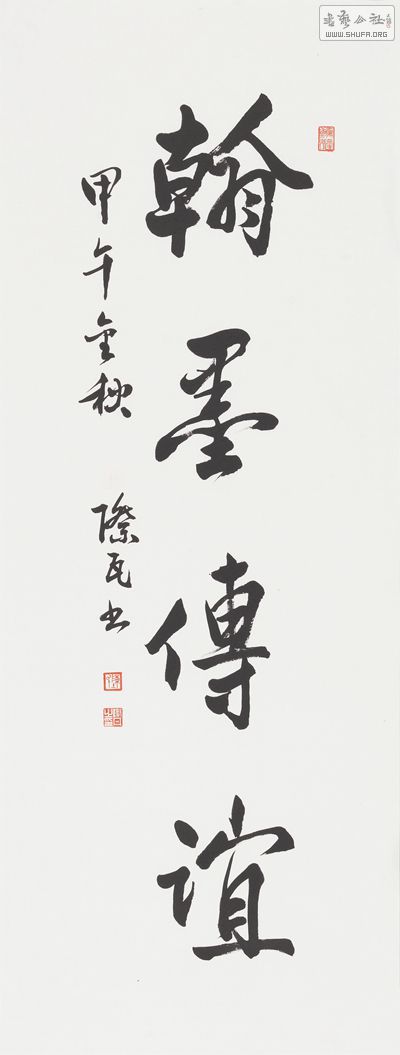 書藝公社
WWW.SHUFA.ORG
翰墨傳誼
甲午金秋 際瓦书